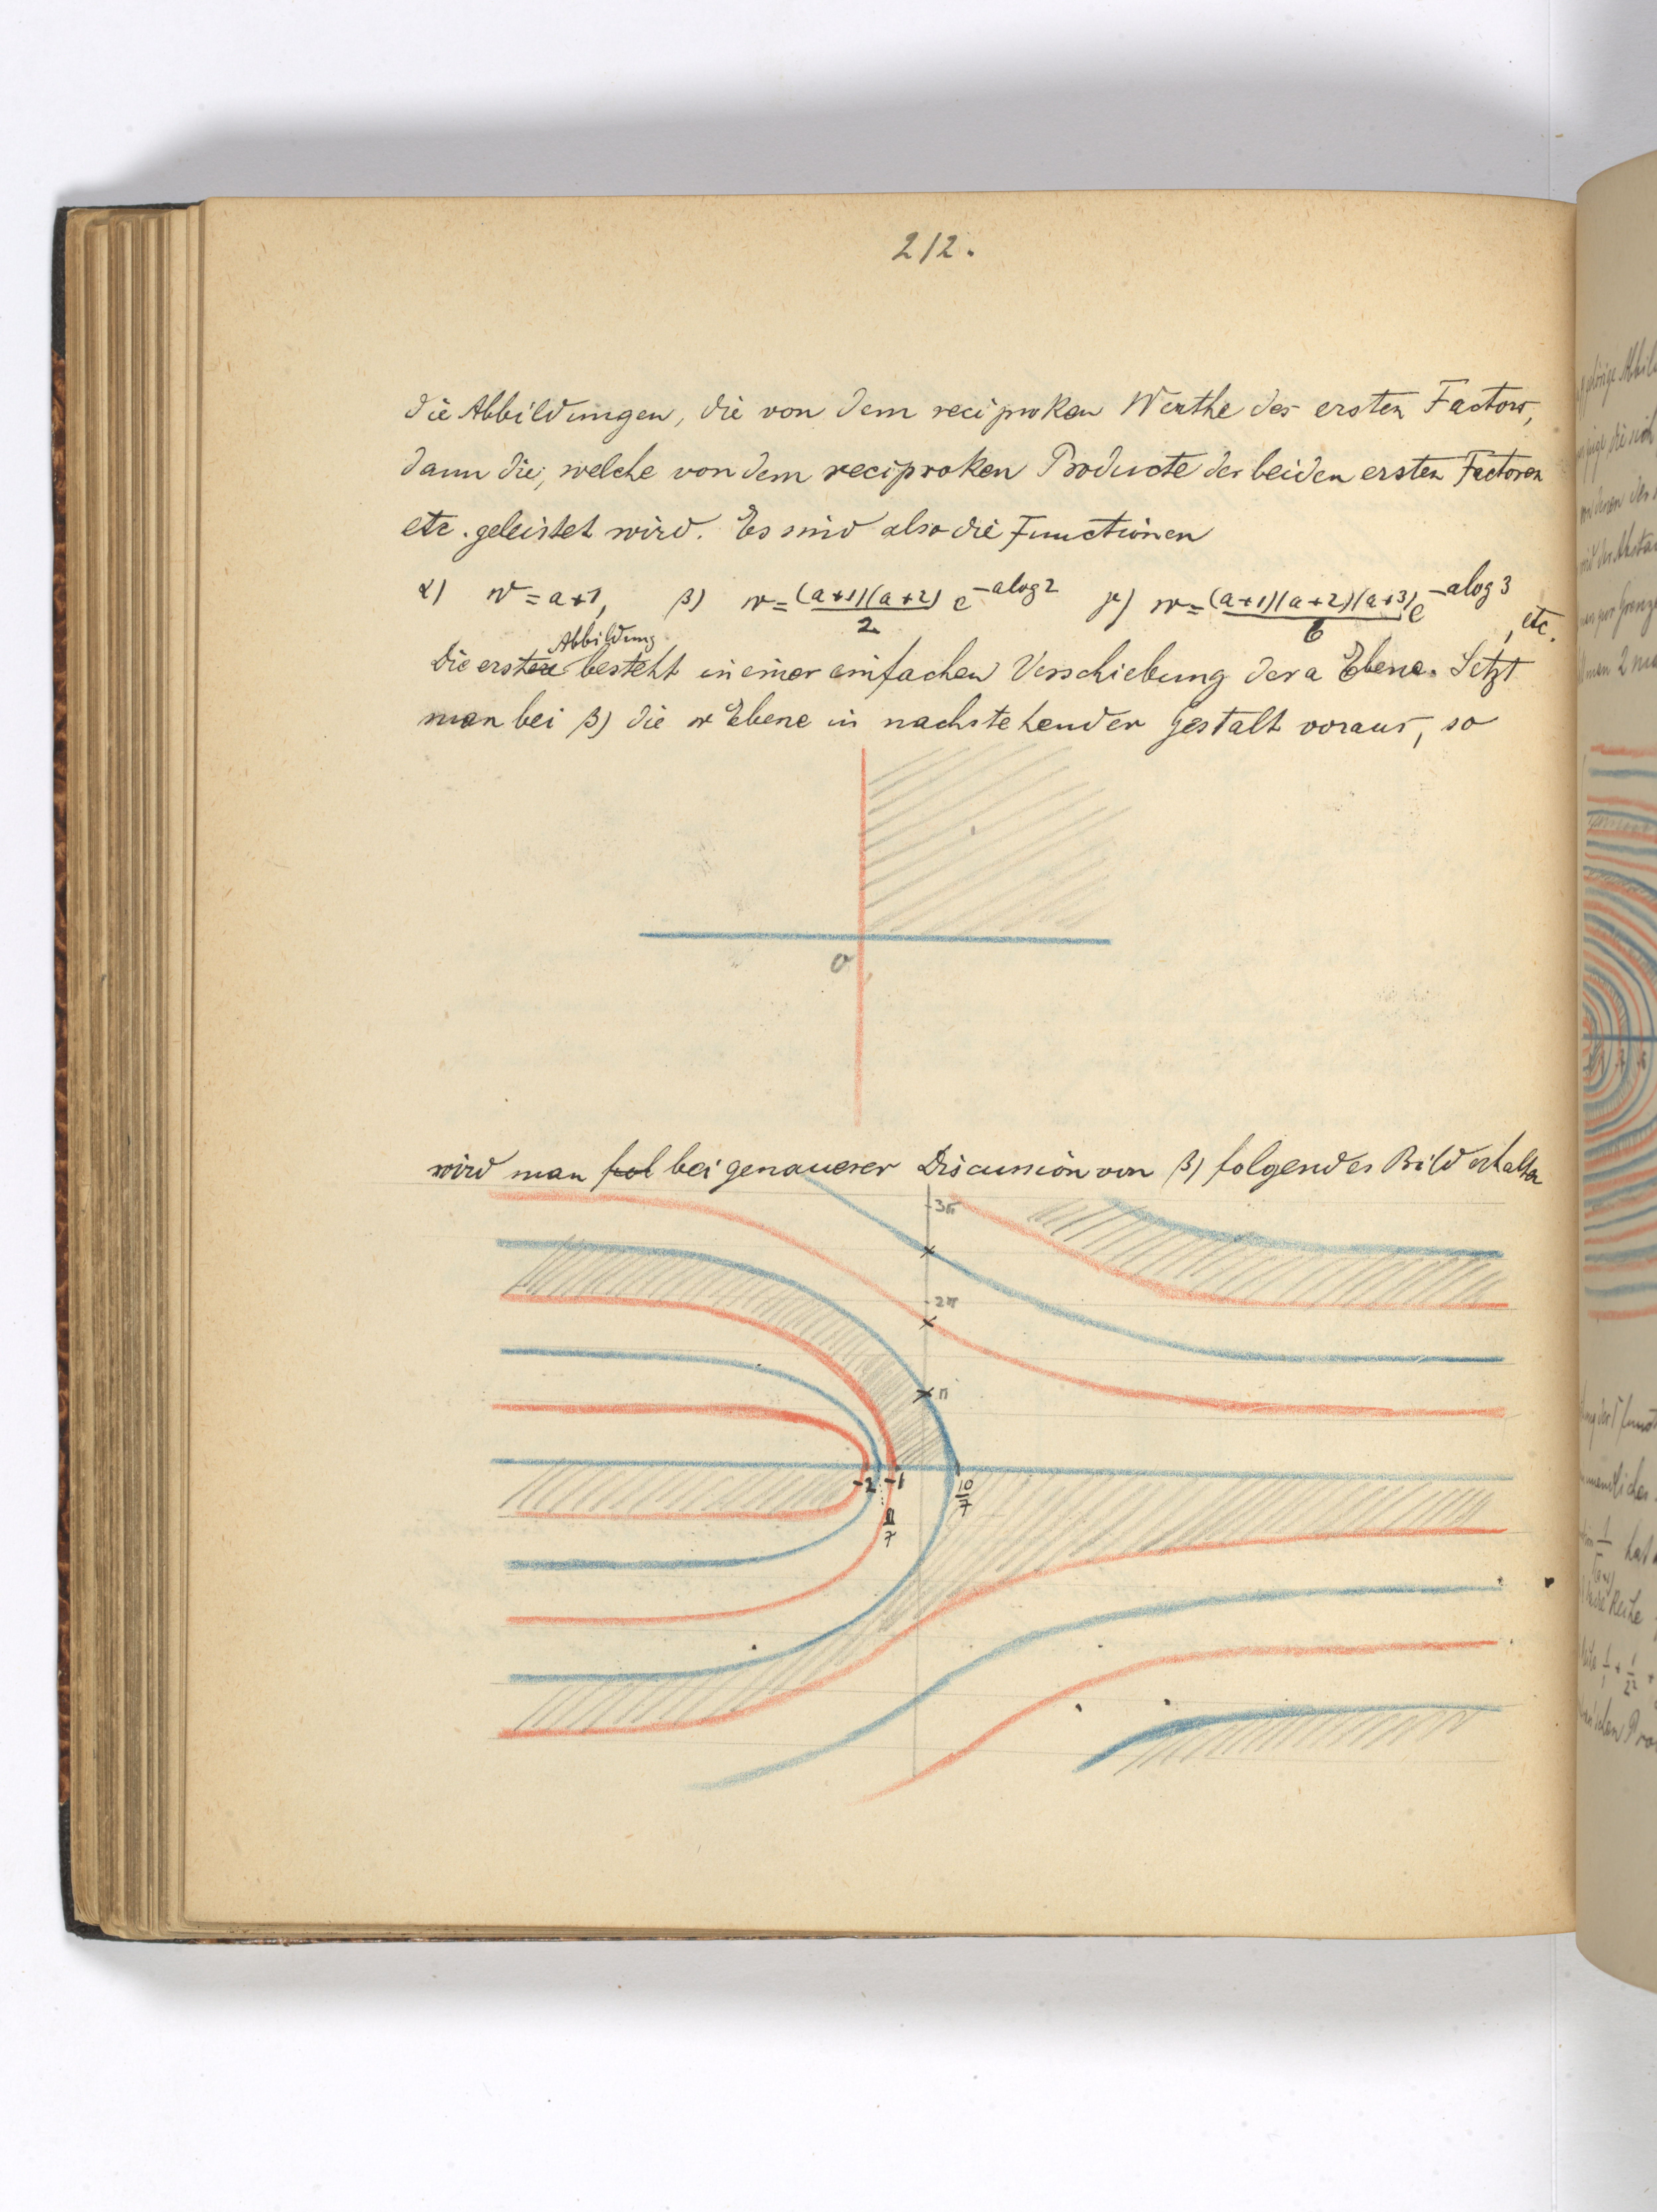 212.
die Abbildungen, die von dem reciproken Werthe des ersten Factors,
dann die, welche von dem reciproken Producte der beiden ersten Factoren
etc. geleistet wird. Es sind also die Functionen
α) w = a+1, β) w = (a+1)(a+2)/2 e^(-a log 2) γ) w = (a+1)(a+2)(a+3)/6 e^(-a log 3), etc.
Abbildung
Die erste besteht in einer einfachen Verschiebung der a Ebene. Setzt
man bei β) die w Ebene in nachstehender Gestalt voraus, so
0
wird man fol bei genauerer Discussion von β) folgendes Bild erhalten
3π
2π
π
-2 -1 10/7